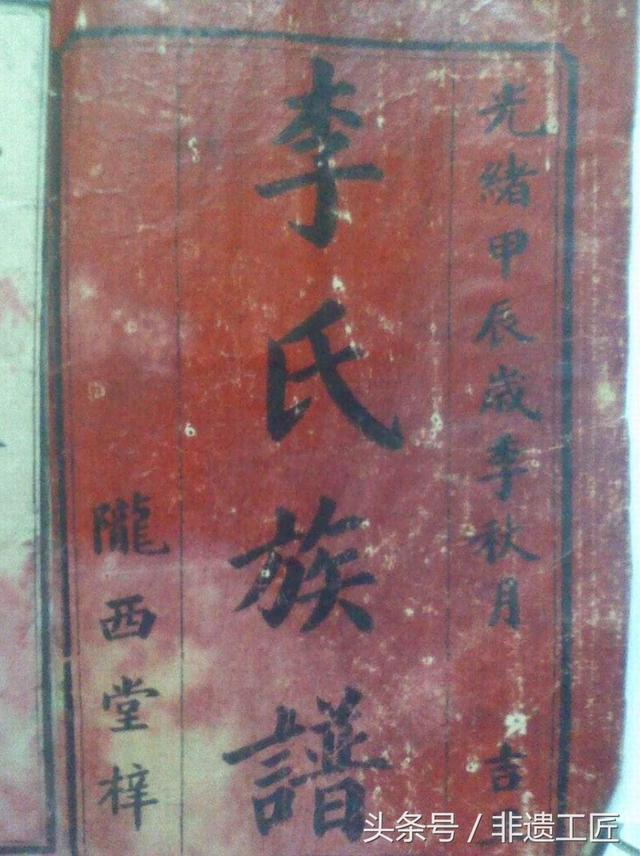 光緒甲辰歲季秋月 吉
李氏族譜
隴西堂梓
头条号／非遗工匠